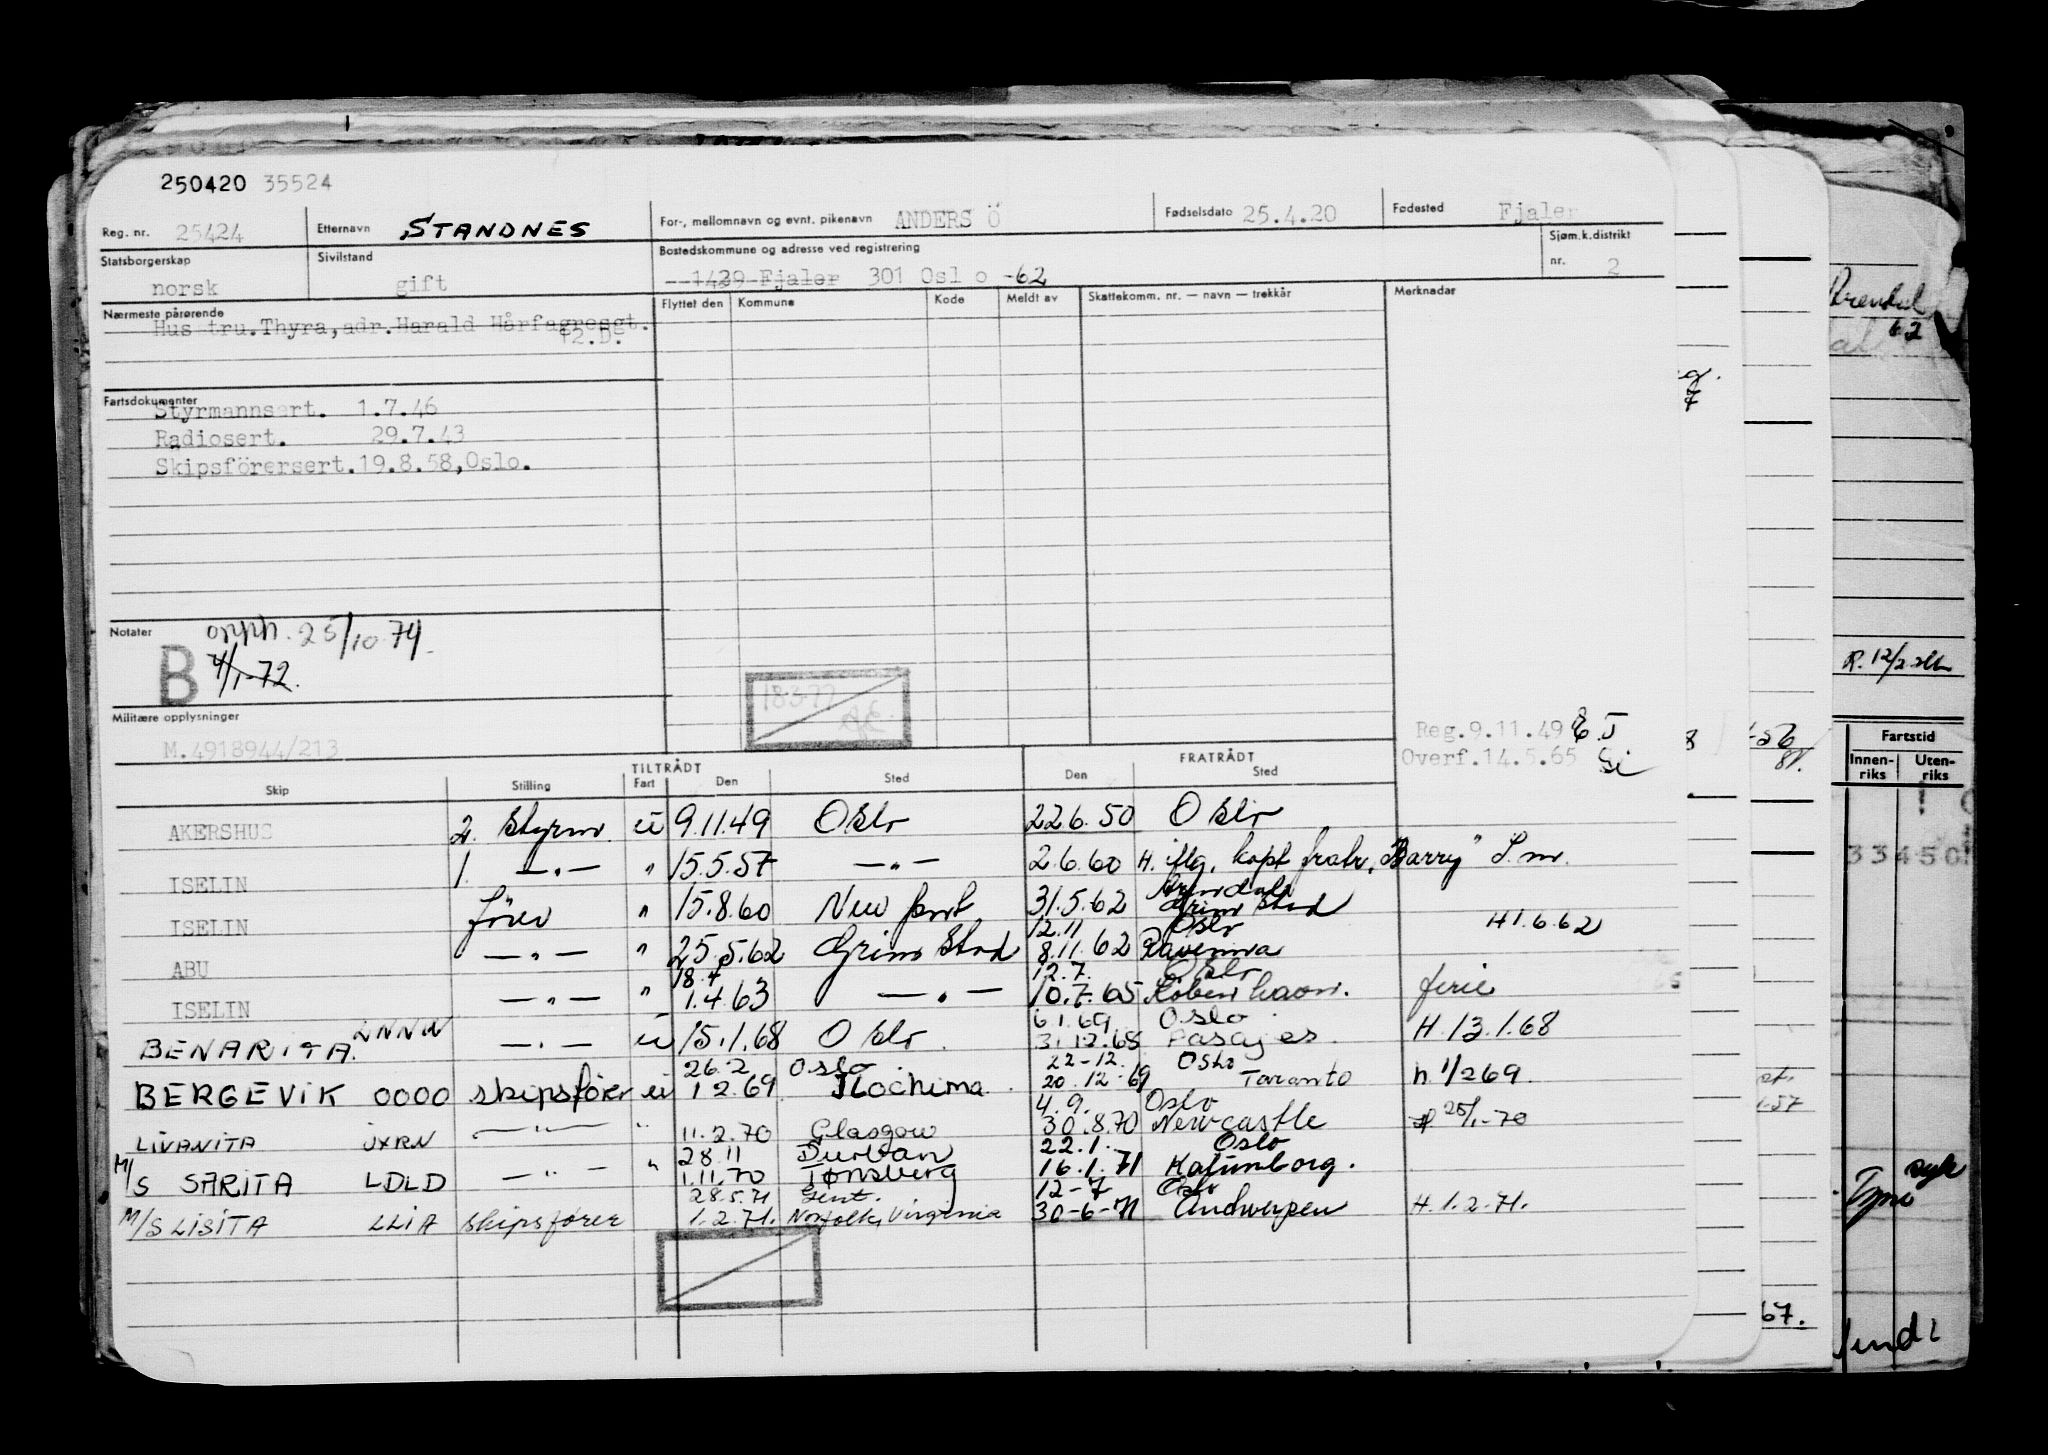 250420 35524
Reg. nr. 25424 Etternavn STANDNES For-, mellomnavn og evnt. pikenavn ANDERS Ö Fødselsdato 25.4.20 Fødested Fjaler
Statsborgerskap norsk Sivilstand gift Bostedskommune og adresse ved registrering 1429 Fjaler 301 Oslo -62 Sjøm.k.distrikt nr. 2
Nærmeste pårørende Flyttet den Kommune Kode Meldt av Skattekomm. nr. — navn — trekkår Merknader
Hustru.Thyra,adr.Harald Hårfagresgt.
12.D.
Fartsdokumenter
Styrmannsert. 1.7.46
Radiosert. 29.7.43
Skipsförersert.19.8.58,Oslo.
Notater
opph. 25/10-74
B 4/1-72.
18377
Militære opplysninger
M.4918944/213
Reg.9.11.49
Overf.14.5.65
TILTRÅDT FRATRÅDT
Skip Stilling Fart Den Sted Den Sted
AKERSHUS 2. Styrm. u 9.11.49 Oslo 22.6.50 Oslo
ISELIN 1. —"— " 15.5.57 —"— 2.6.60 H. iflg. kapt fratr. "Barry" S.m.
Arendal
ISELIN fører " 15.8.60 New York 31.5.62 Grimstad H 1.6.62
12.11 Oslo
ABU —"— " 25.5.62 Grimstad 8.11.62 Ravenna
18.4 12.7. Oslo
ISELIN —"— " 1.4.63 —"— 10.7.65 København. ferie
6.1.69 Oslo
BENARITA LNNW —"— u 15.1.68 Oslo 31.12.68 Pasajes. H. 13.1.68
26.2 Oslo 22-12. Oslo
BERGEVIK OOOO skipsfører u 1.2.69 Kochima 20.12.69 Taranto h. 1/2 69.
4.9. Oslo
LIVANITA JXRN —"— " 11.2.70 Glasgow 30.8.70 Newcastle 25/1-70
28.11 Durban 22.1. Oslo
M/S SARITA LDLD —"— " 1.11.70 Tønsberg 16.1.71 Kalunborg.
28.5.71 Gent. 12-7 Oslo
M/S LISITA LLIA skipsfører 1.2.71. Norfolk, Virginia 30-6-71 Andwerpen H.1.2.71.
Arendal
62
R. 12/2
Fartstid
Innen-riks Uten-riks
33450
syk
67.